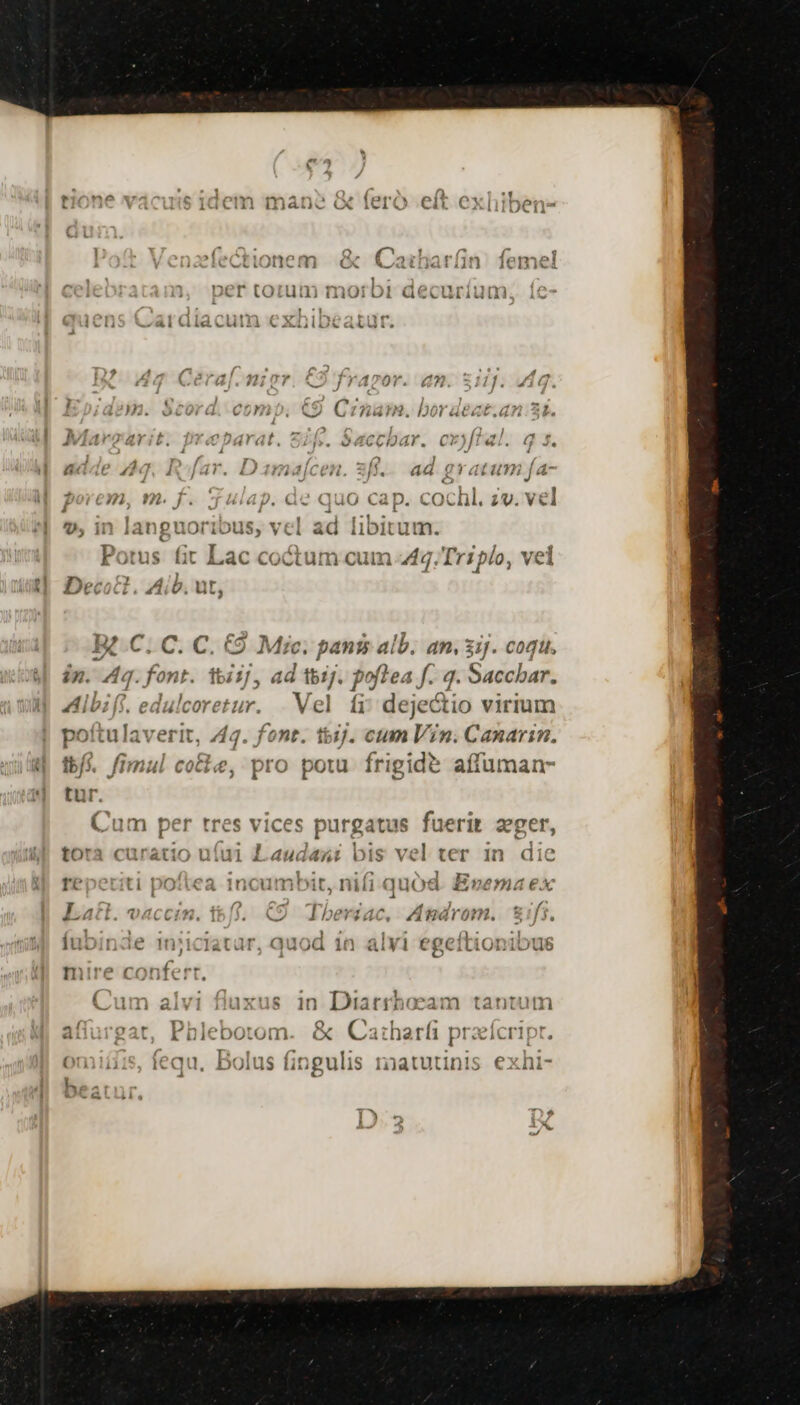 ( 53 )
tione vacuis idem manè & ſerò eſt exhiben-
dum.
Poſt Venæſectionem & Catharſin ſemel
celebratam, per totum morbi decurſum, ſe-
quens Cardiacum exhibeatur.
℞ Aq Ceraſ. nigr. & fragor. an. ʒiij. Aq.
Epidem. Scord. comp. & Cinam. hordeat. an ʒi.
Margarit. præparat. ʒiſs. Sacchar. cryſtal. q s.
adde Aq. Roſar. Damaſcen. ʒſs. ad gratum ſa-
porem, m. f. Julap. de quo cap. cochl. iv. vel
v, in languoribus, vel ad libitum.
Potus ſit Lac coctum cum Aq. Triplo, vel
Decoct. Alb. ut,
℞ C. C. C. & Mic. panis alb. an. ʒij. coqu.
in. Aq. font. ℔iij, ad ℔ij. poſtea ſ. q. Sacchar.
Albiſſ. edulcoretur. Vel ſi dejectio virium
poſtulaverit, Aq. font. ℔ij. cum Vin. Canarin.
℔ſs. ſimul coctæ, pro potu frigidè aſſuman-
tur.
Cum per tres vices purgatus fuerit æger,
tota curatio uſui Laudani bis vel ter in die
repetiti poſtea incumbit, niſi quòd Enema ex
Lact. vaccin. ℔ſſ. & Theriac. Androm. ʒiſs.
ſubinde injiciatur, quod in alvi egeſtionibus
mire confert.
Cum alvi fluxus in Diarrhœam tantum
aſſurgat, Phlebotom. & Catharſi præſcript.
omiſſis, ſequ. Bolus ſingulis matutinis exhi-
beatur.
D 3 ℞